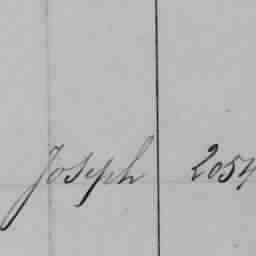 Joseph 2054